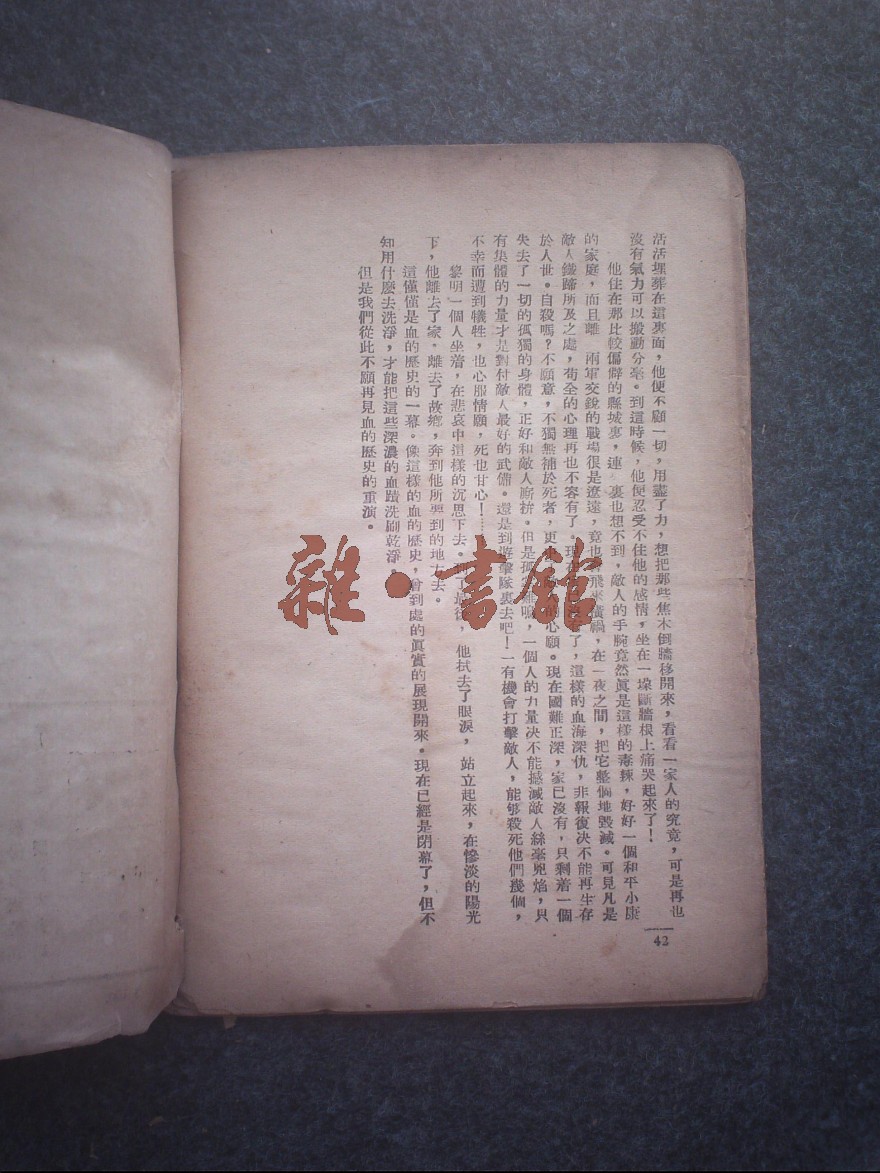 活活埋葬在這裏面，他便不顧一切，用盡了力，想把那些焦木倒牆移開來，看看一家人的究竟，可是再也
沒有氣力可以搬動分毫。到這時候，他便忍受不住他的感情，坐在一垛斷牆根上痛哭起來了！
他住在那比較偏僻的縣城裏，連 裏也想不到，敵人的手腕竟然眞是這樣的毒辣，好好一個和平小康
的家庭，而且離 兩軍交銳的戰場很是遼遠，竟也 飛來橫禍，在一夜之間，把它整個地毀滅。可見凡是
敵人鐵蹄所及之處，苟全的心理再也不容有了。現在 了，這樣的血海深仇，非報復決不能再生存
於人世。自殺嗎？不願意，不獨無補於死者，更 的心願。現在國難正深，家已沒有，只剩着一個
失去了一切的孤獨的身體，正好和敵人廝拚。但是孤掌難鳴，一個人的力量決不能撼滅敵人絲毫兇焰，只
有集體的力量才是對付敵人最好的武備。還是到遊擊隊裏去吧！一有機會打擊敵人，能够殺死他們幾個，
不幸而遭到犧牲，也心服情願，死也甘心！……
黎明一個人坐着，在悲哀中這樣的沉思下去。到了最後，他拭去了眼淚，站立起來，在慘淡的陽光
下，他離去了家，離去了故鄉，奔到他所要到的地方去。
這僅僅是血的歷史的一幕。像這樣的血的歷史，曾到處的眞實的展現開來。現在已經是閉幕了，但不
知用什麽去洗淨，才能把這些深濃的血蹟洗刷乾淨。
但是我們從此不願再見血的歷史的重演。
42
雜·書館